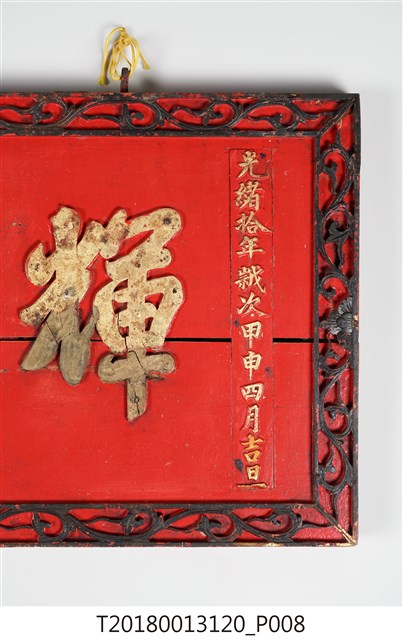 光緒拾年歲次甲申四月吉旦
輝
T20180013120_P008